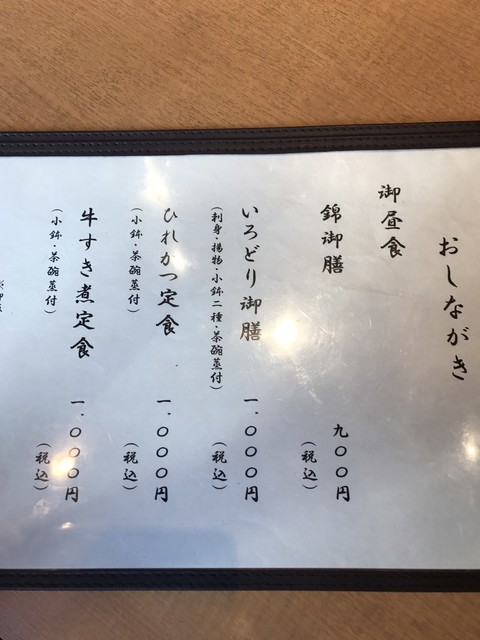 おしながき
御昼食
錦御膳 九〇〇円
（税込）
いろどり御膳 一、〇〇〇円
（刺身・揚物・小鉢二種・茶碗蒸付） （税込）
ひれかつ定食 一、〇〇〇円
（小鉢・茶碗蒸付） （税込）
牛すき煮定食 一、〇〇〇円
（小鉢・茶碗蒸付） （税込）